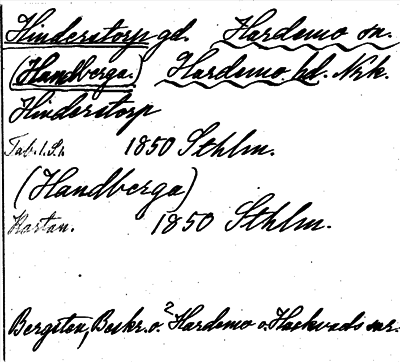 Hinderstorp gd. Hardemo sn.
(Handberga.) Hardemo hd. Nrk.
Hinderstorp
Tab. l. S. 1850 Sthlm.
(Handberga)
Kartan. 1850 Sthlm.
Bergsten, Beskr. o. 2 Hardemo o. Hackvads snr.